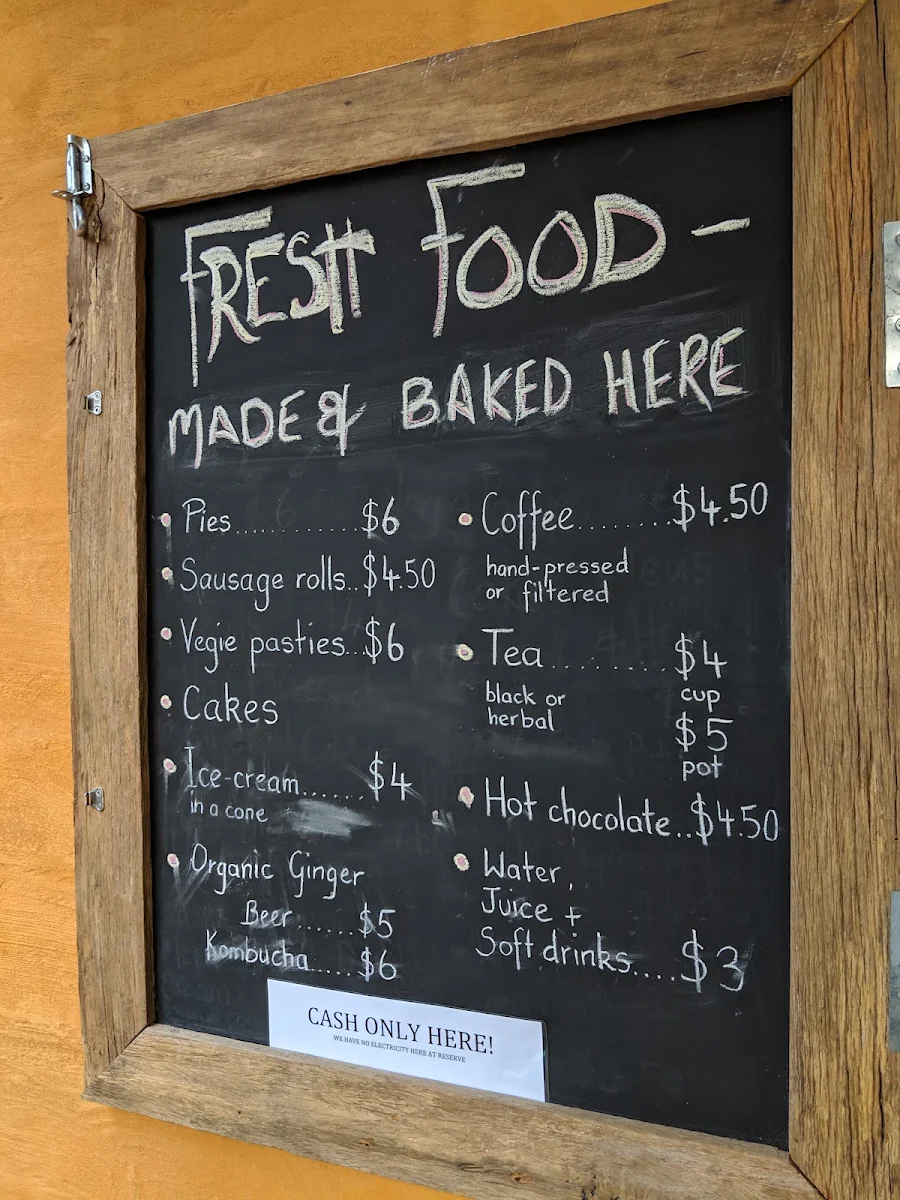 FRESH FOOD -
MADE & BAKED HERE
Pies............$6
Sausage rolls..$4.50
Vegie pasties...$6
Cakes
Ice-cream.......$4
in a cone
Organic Ginger
Beer......$5
Kombucha.....$6
Coffee........$4.50
hand-pressed
or filtered
Tea.........$4
black or
herbal
cup
$5
pot
Hot chocolate..$4.50
Water,
Juice +
Soft drinks....$3
CASH ONLY HERE!
WE HAVE NO ELECTRICITY HERE AT RESERVE